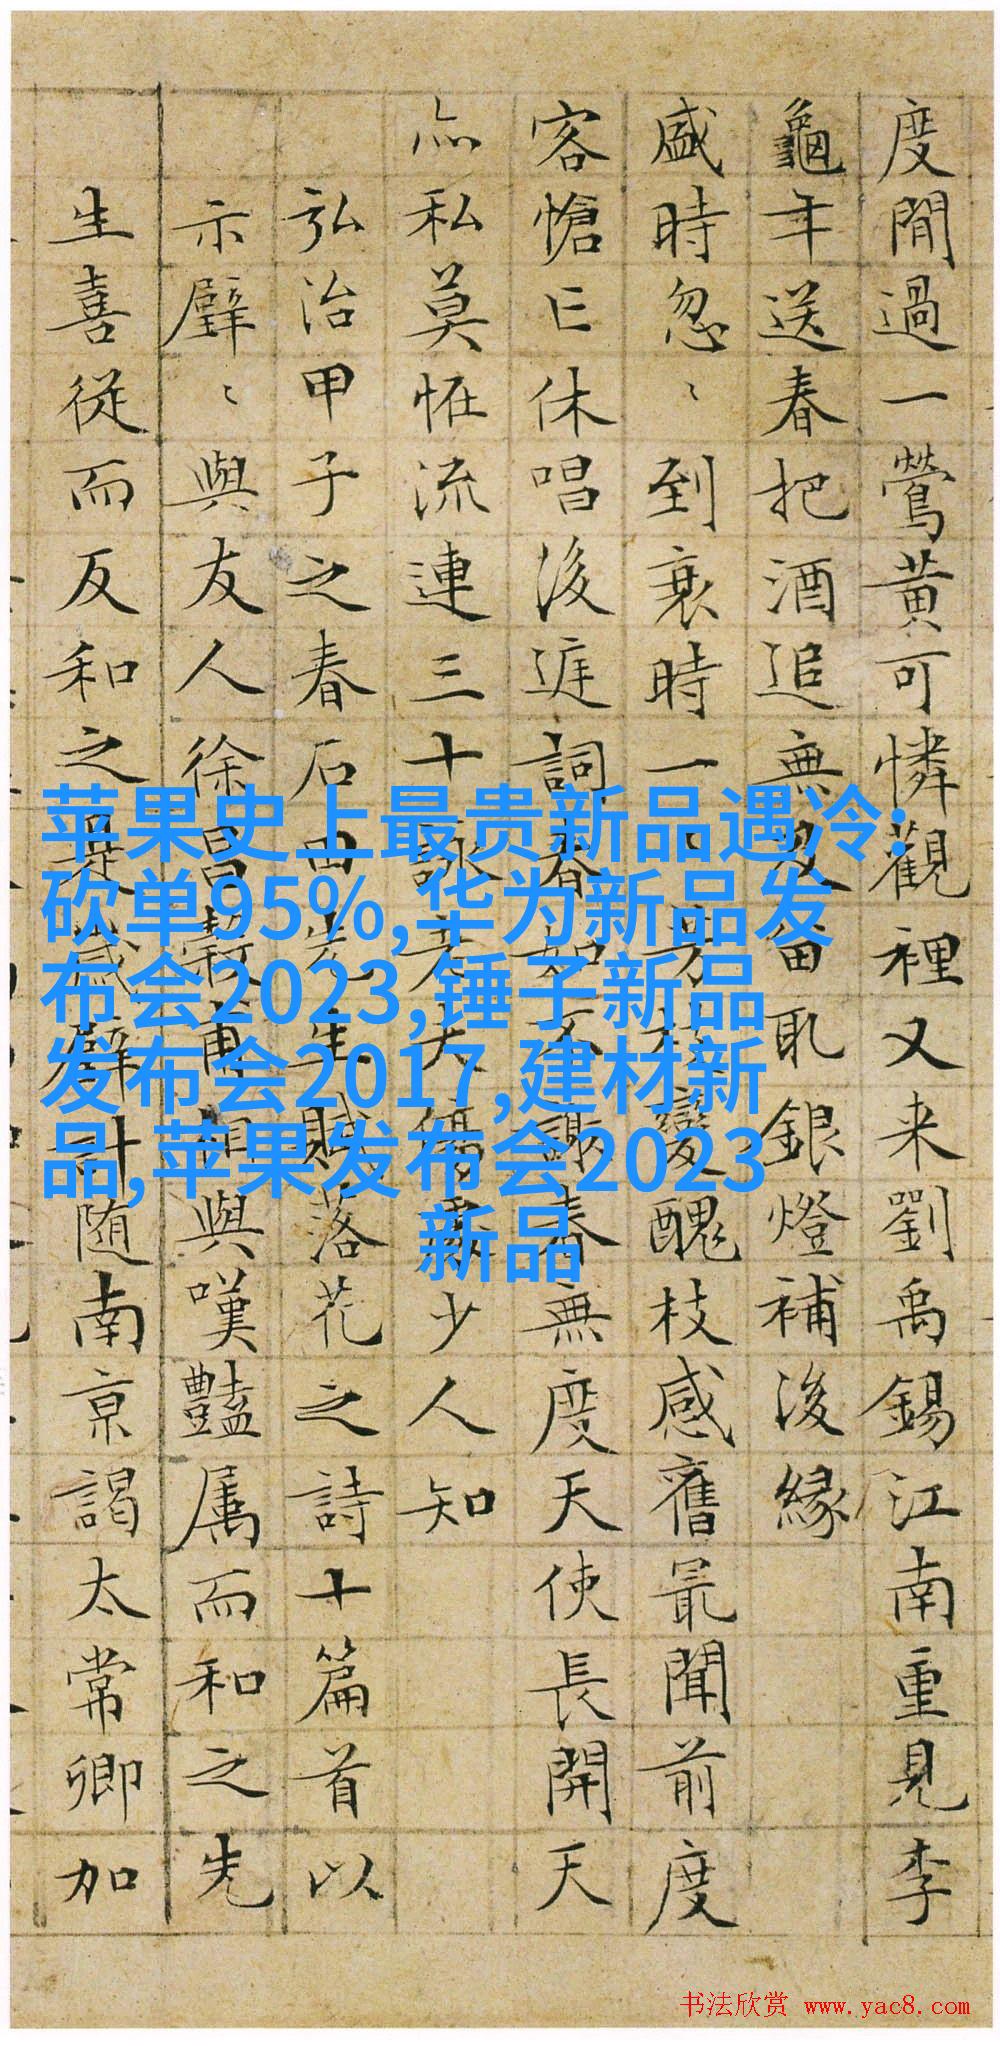 度閒過一鶯黃可憐觀裡又来劉禹錫江南重見李
龜年送春把酒追無及留取銀燈補後緣
盛時忽〻到衰時一一芳枝變醜枝感舊最聞前度
客愴亡休唱後庭詞春如不謝春無度天使長開天
亦私莫怪流連三十詠老夫傷處少人知
弘治甲子之春石田先生賦落花之詩十篇首以
示璧〻與友人徐昌穀甫相與嘆豔属而和之先
生喜從而反和之是歲璧計随南京謁太常卿加
苹果史上最贵新品遇冷:
砍单95%,华为新品发
布会2023,锤子新品
发布会2017,建材新
品,苹果发布会2023
新品
书法欣赏 www.yac8.com